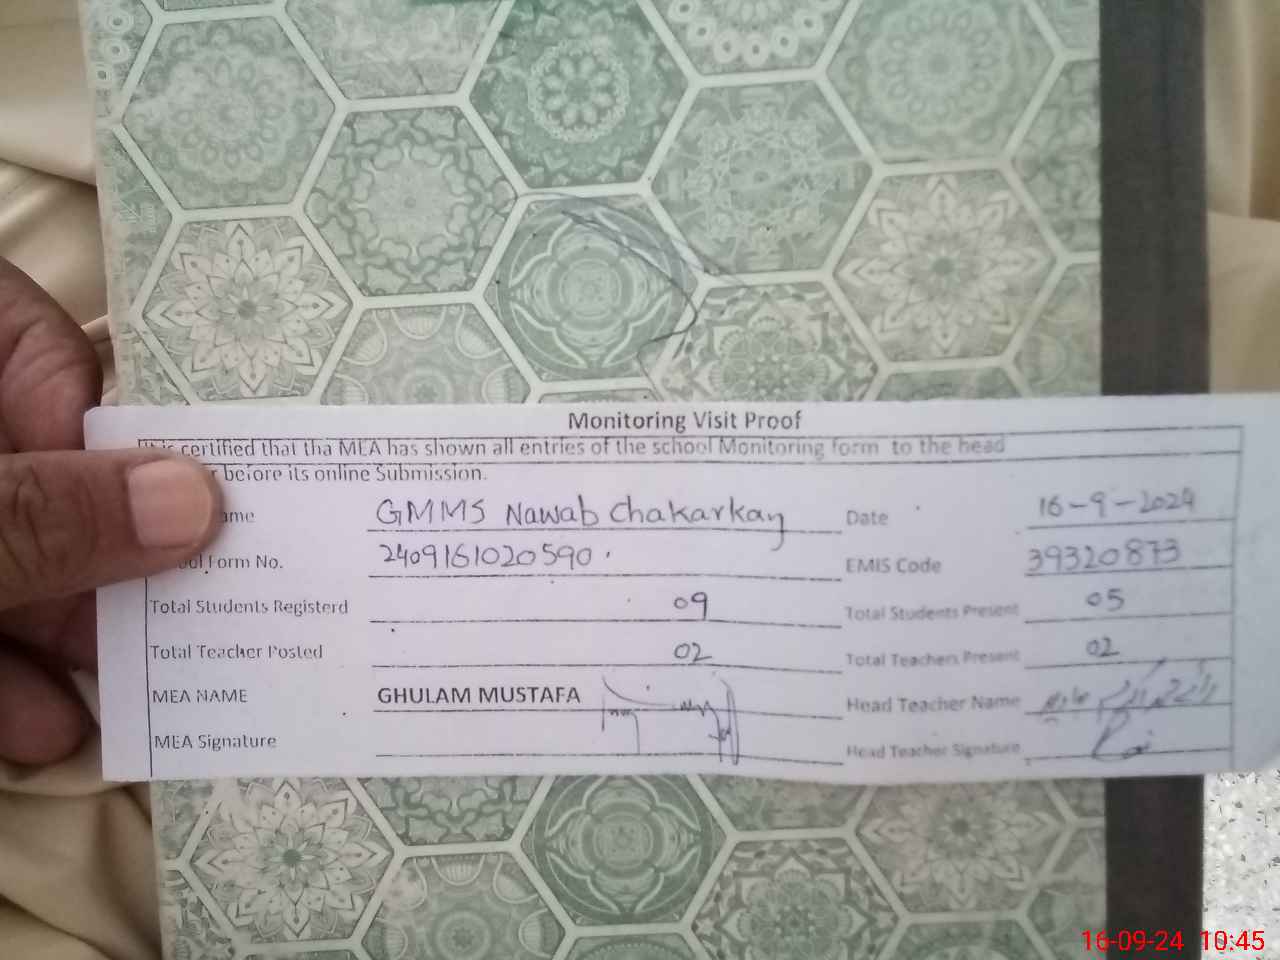 Monitoring Visit Proof
is certified that tha MEA has shown all entries of the school Monitoring form to the head
before its online Submission.
GMMS Nawab Chakarkay Date 16-9-2024
Form No. 2409161020590 EMIS Code 39320873
Total Students Registerd 09 Total Students Present 05
Total Teacher Posted 02 Total Teachers Present 02
MEA NAME GHULAM MUSTAFA Head Teacher Name
MEA Signature Head Teacher Signature
16-09-24 10:45